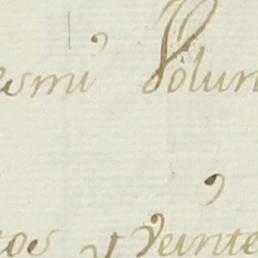 es mi Volun
tos y veinte